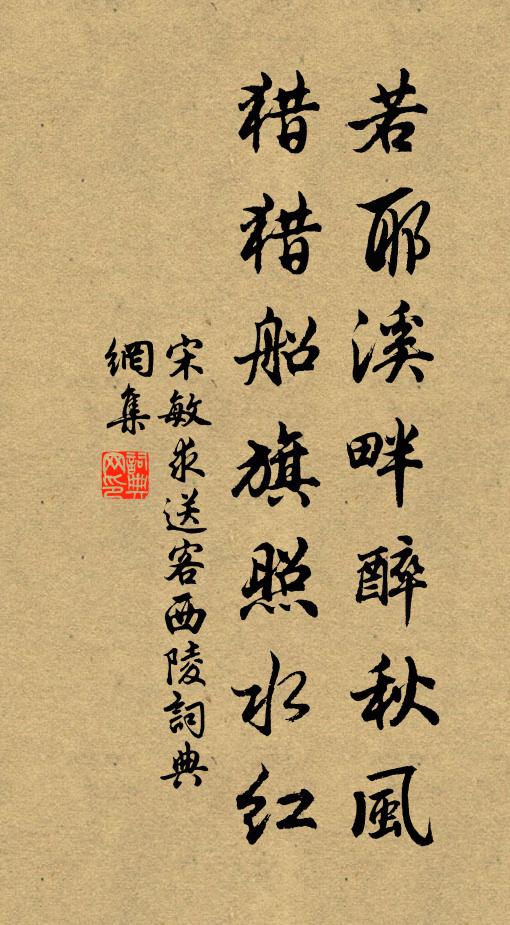 若耶溪畔醉秋風
猎猎船旗照水紅
宋敏求送客西陵詞典
網集
詞典
网印